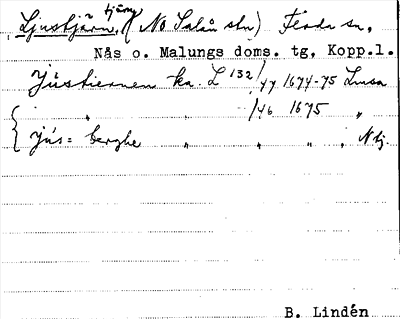 Ljustjärn, tjärn (NO Salån stn) Floda sn,
Nås o. Malungs doms. tg, Kopp.l.
Jüstiernen ka. L 132/47 1674-75 Lmsa
" /46 1675 "
Jüs= berghe " " " " Nbj.
B. Lindén